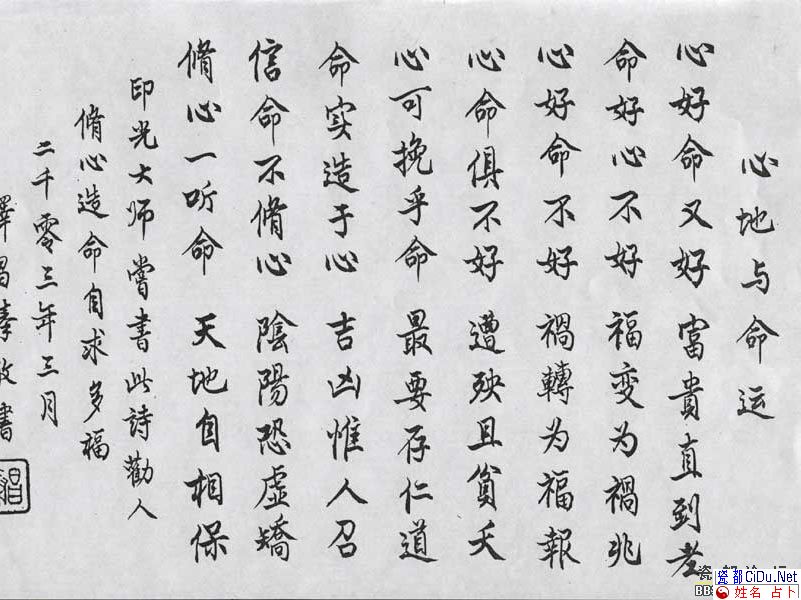 心地与命运
心好命又好 富貴直到老
命好心不好 福变为禍兆
心好命不好 禍轉为福報
心命俱不好 遭殃且貧夭
心可挽乎命 最要存仁道
命实造于心 吉凶惟人召
信命不脩心 陰陽恐虛矯
脩心一听命 天地自相保
印光大师嘗书此詩勸人
脩心造命自求多福
二千零三年三月
瓷都CiDu.Net
姓名 占卜